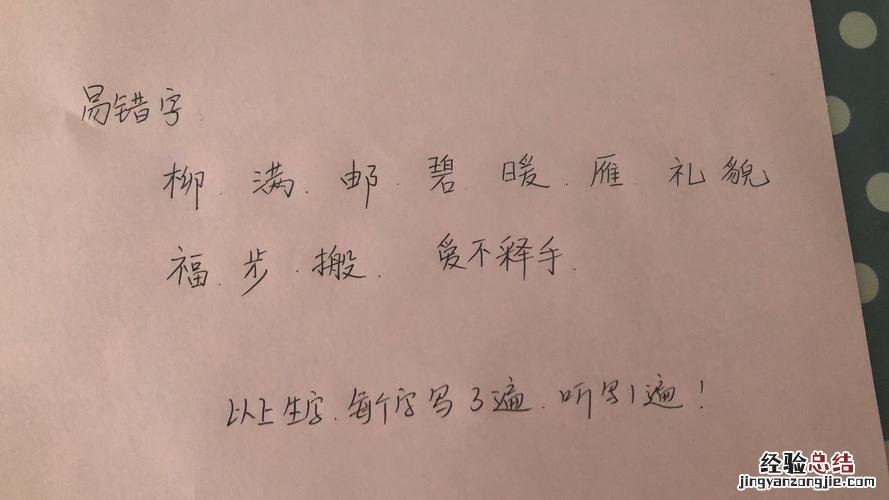 易错字
柳.满.邮.碧.暖.雁.礼貌
福.步.搬.爱不释手.
以上生字.每个字写3遍.听写1遍!
经验总结
jingyanzongjie.com